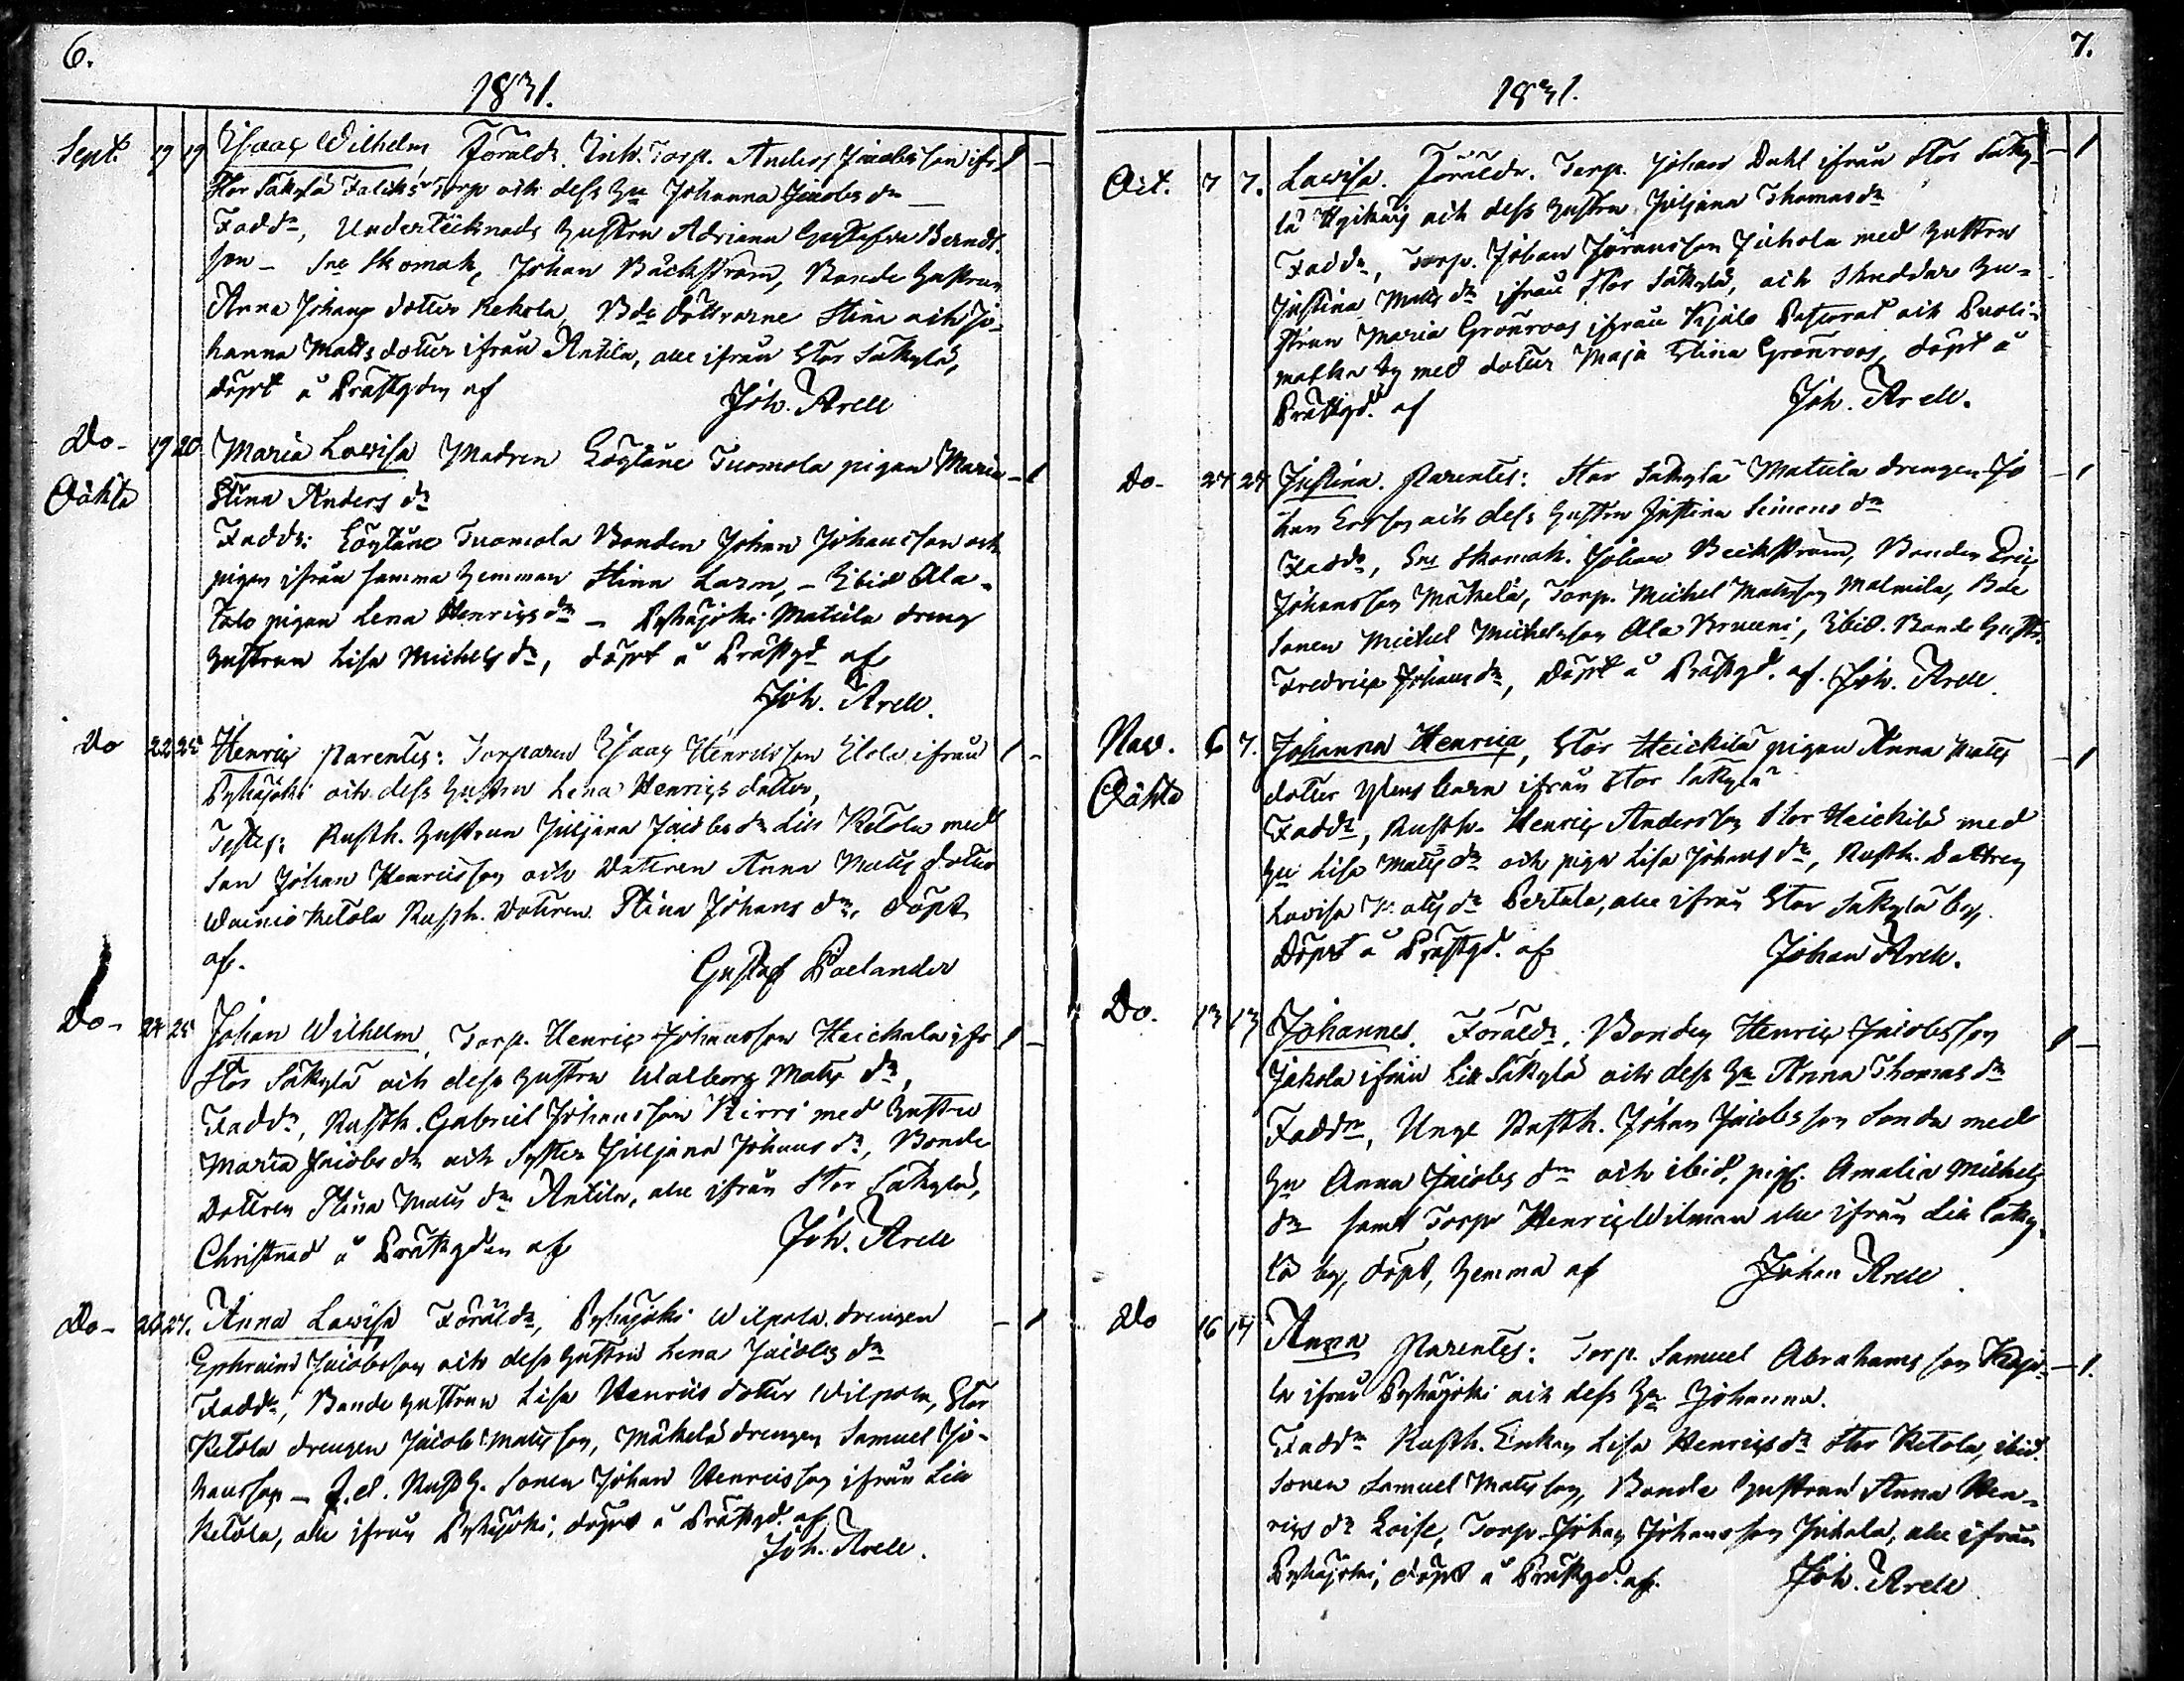 6.
1831.
Sept. 19 19 Isaac Wilhelm Föräldr. Inh. Torp. Anders Jacobsson ifr. 1 –
Stor Säkylä Falcks Torp och dess Hu Johanna Jacobs dr
Faddr, Undertecknads Hustru Adriana Gustafva Berndt-
son – Sne Skomak. Johan Bäckström, Bonde Hustrun
Anna Johans dotter Rekola, Bde döttrarne Stina och Jo-
hanna Matts dotter ifrån Antila, alla ifrån Stor Säkylä,
döpt å Prästgden af Joh. Arell
Do – 19 20 Maria Lovisa Modren Löytäne Tuomola pigan Maria – 1
Oäkta Stina Anders dr
Faddr: Löytäne Tuomola Bonden Johan Johansson och
pigan ifrån samma Hemman Stina Larsn, – Ibid Ala-
talo pigan Lena Henrics dr – Pyhäjoki Mattila dreng
Hustrun Lisa Michels dr, döpt å Prästgd af
Joh. Arell.
Do 22 25 Henric Parentes: Torparen Isaac Henricsson Elola ifrån 1 –
Pyhäjoki och dess Hustru Lena Henrics dotter,
Testes: Rusth. Hustrun Juljana Jacobs dr Lill Ketola med
Son Johan Henricsson och Dottren Anna Matts dotter
Wainio Ketola Rusth. Dottren Stina Johans dr, döpt
af. Gustaf Polander
Do – 24 25 Johan Wilhelm, Torp. Henric Johansson Heickala ifr 1 –
Stor Säkylä och dess Hustru Walborg Matts dr,
Faddr, Rusth. Gabriel Johansson Kirri med Hustru
Maria Jacobs dr och Syster Juljana Johans dr, Bonde
Dottren Stina Matts dr Antila, alla ifrån Stor Säkylä,
Christnad å Prästgden af Joh. Arell
Do – 26 27. Anna Lovisa Föräldr, Pyhäjoki Wilpola drengen – 1
Ephraim Jacobsson och dess Hustru Lena Jacobs dr
Faddr, Bonde Hustrun Lisa Henrics dotter Wilpola, Stor
Ketola drengen Jacob Mattsson, Mäkelä drengen Samuel Jo-
hansson – f.d. Rusth. Sonen Johan Henricsson ifrån Lill
Ketola, alla ifrån Pyhäjoki, döpt å Prästgd. af
Joh. Arell.
7.
1831.
Oct. 7 7. Lovisa. Föräldr. Torp. Johan Dahl ifrån Stor Säky- – 1
lä och dess Hustru Juljana Thomas dr
Faddr, Torp. Johan Göransson Juhola med Hustru
Justina Matts dr ifrån Stor Säkylä, och Skreddare Hu-
strun Maria Grönroos ifrån Kjulo Pastorat och
by med dotter Maja Stina Grönroos, döpt å
Prästgd. af Joh. Arell.
Do – 24 24 Justina. Parentes: Stor Säkylä Mattila drengen Jo – 1
han Ersson och dess Hustru Justina Simons dr
Faddr, Sne Skomak. Johan Beckström, Bonden Eric
Johansson Mäkelä, Torp. Michel Mattsson Malmila, Bde
Sonen Michel Michelsson Ala Bruuni, Ibid. Bonde Hustr.
Fredrica Johans dr, döpt å Prästgd. af. Joh. Arell.
Nov. 6 7. Johanna Henrica, Stor Heickilä pigan Anna Matts – 1
Oäkta dotter barn ifrån Stor Säkylä
Faddr, Rusth. Henric Andersson Stor Heickilä med
Hu Lisa Matts dr och pigan Lisa Johans dr, Rusth. Dottren
Lovisa Matts dr Pertula, alla ifrån Stor Säkylä by,
döpt å Prästgd. af Johan Arell.
Do. 13 13 Johannes. Föräldr, Bonden Henric Jacobsson 1 –
Jakola ifrån Lill Säkylä och dess Hu Anna Thomas dr
Faddr, Unge Rusth. Johan Jacobsson Sonda med
Hu Anna Jacobs dr och ibid. pig. Amalia Michels
dr samt Torp Henric Wilman alla ifrån Lill Säky-
lä by, döpt, hemma af Johan Arell.
Do 16 17 Anna Parentes: Torp. Samuel Abrahamsson – 1.
la ifrån Pyhäjoki och dess Hu Johanna.
Faddr Rusth. Enkan Lisa Henrics dr Stor Ketola, ibid.
Sonen Samuel Mattsson, Bonde Hustrun Anna Hen-
rics dr, Torp. Johan Johansson Juhola, alla ifrån
Pyhäjoki, döpt å Prästgd. af. Joh. Arell